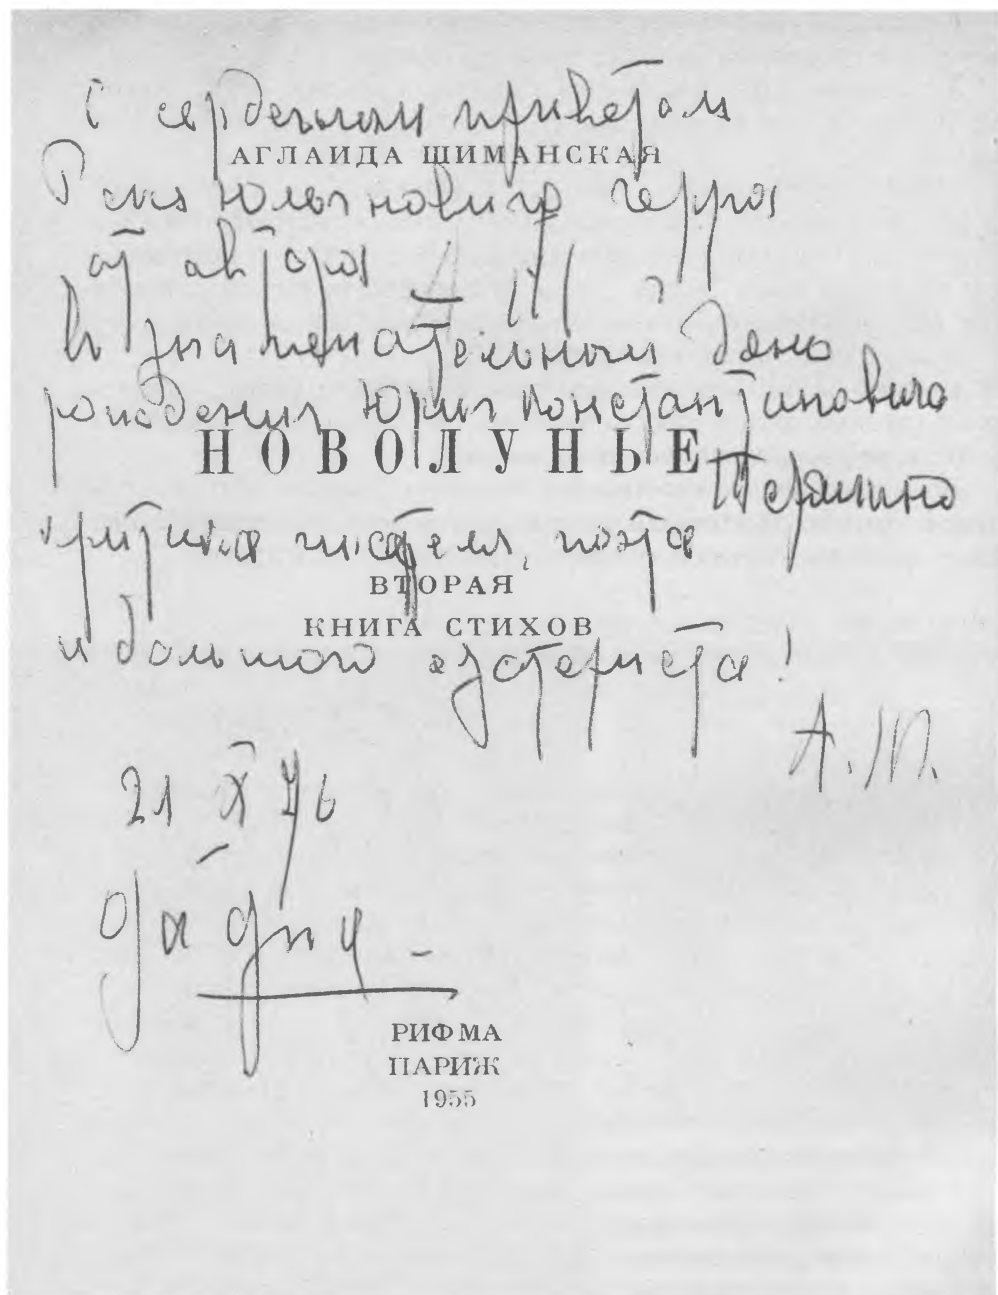 С сердечным приветом
АГЛАИДА ШИМАНСКАЯ
Рене Юлиановичу Герра
от автора
в знаменательный день
рождения Юрия Константиновича
НОВОЛУНЬЕ
Терапиано
критика писателя поэта
ВТОРАЯ
КНИГА СТИХОВ
и большого эзотериста!
А. Ш.
21 X 76
РИФМА
ПАРИЖ
1955